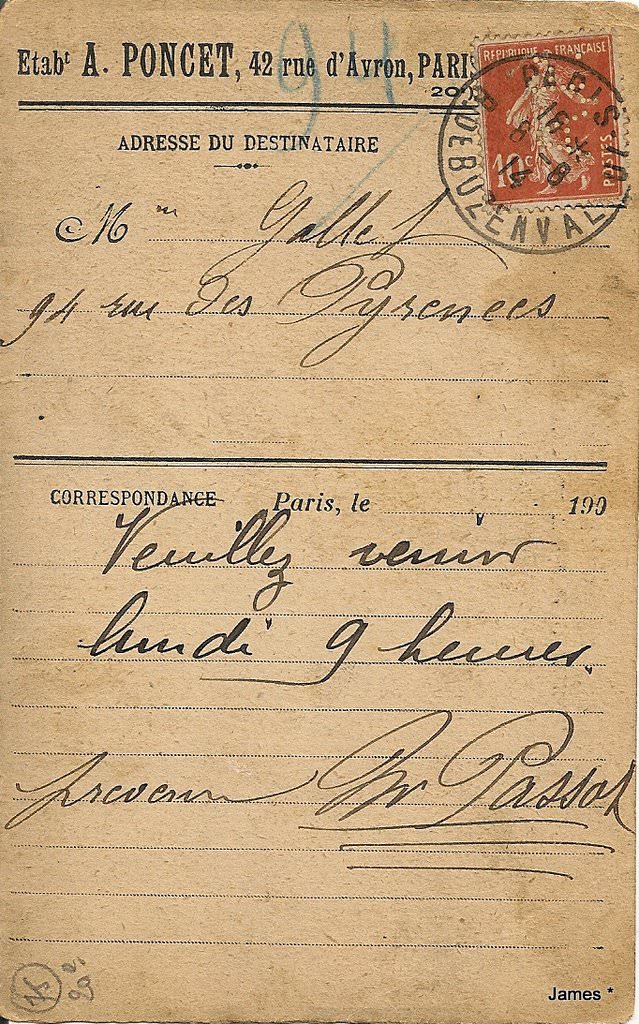 Etabt A. PONCET, 42 rue d'Avron, PARIS
94
20
RÉPUBLIQUE FRANÇAISE
10c
POSTES
PARIS
R. DE BUZENVAL
16 *
8 - 8
14
ADRESSE DU DESTINATAIRE
Mme Gallet
94 rue des Pyrenees
CORRESPONDANCE Paris, le 190
Veuillez venir
lundi 9 heures.
prevenir Mr Passot
James *